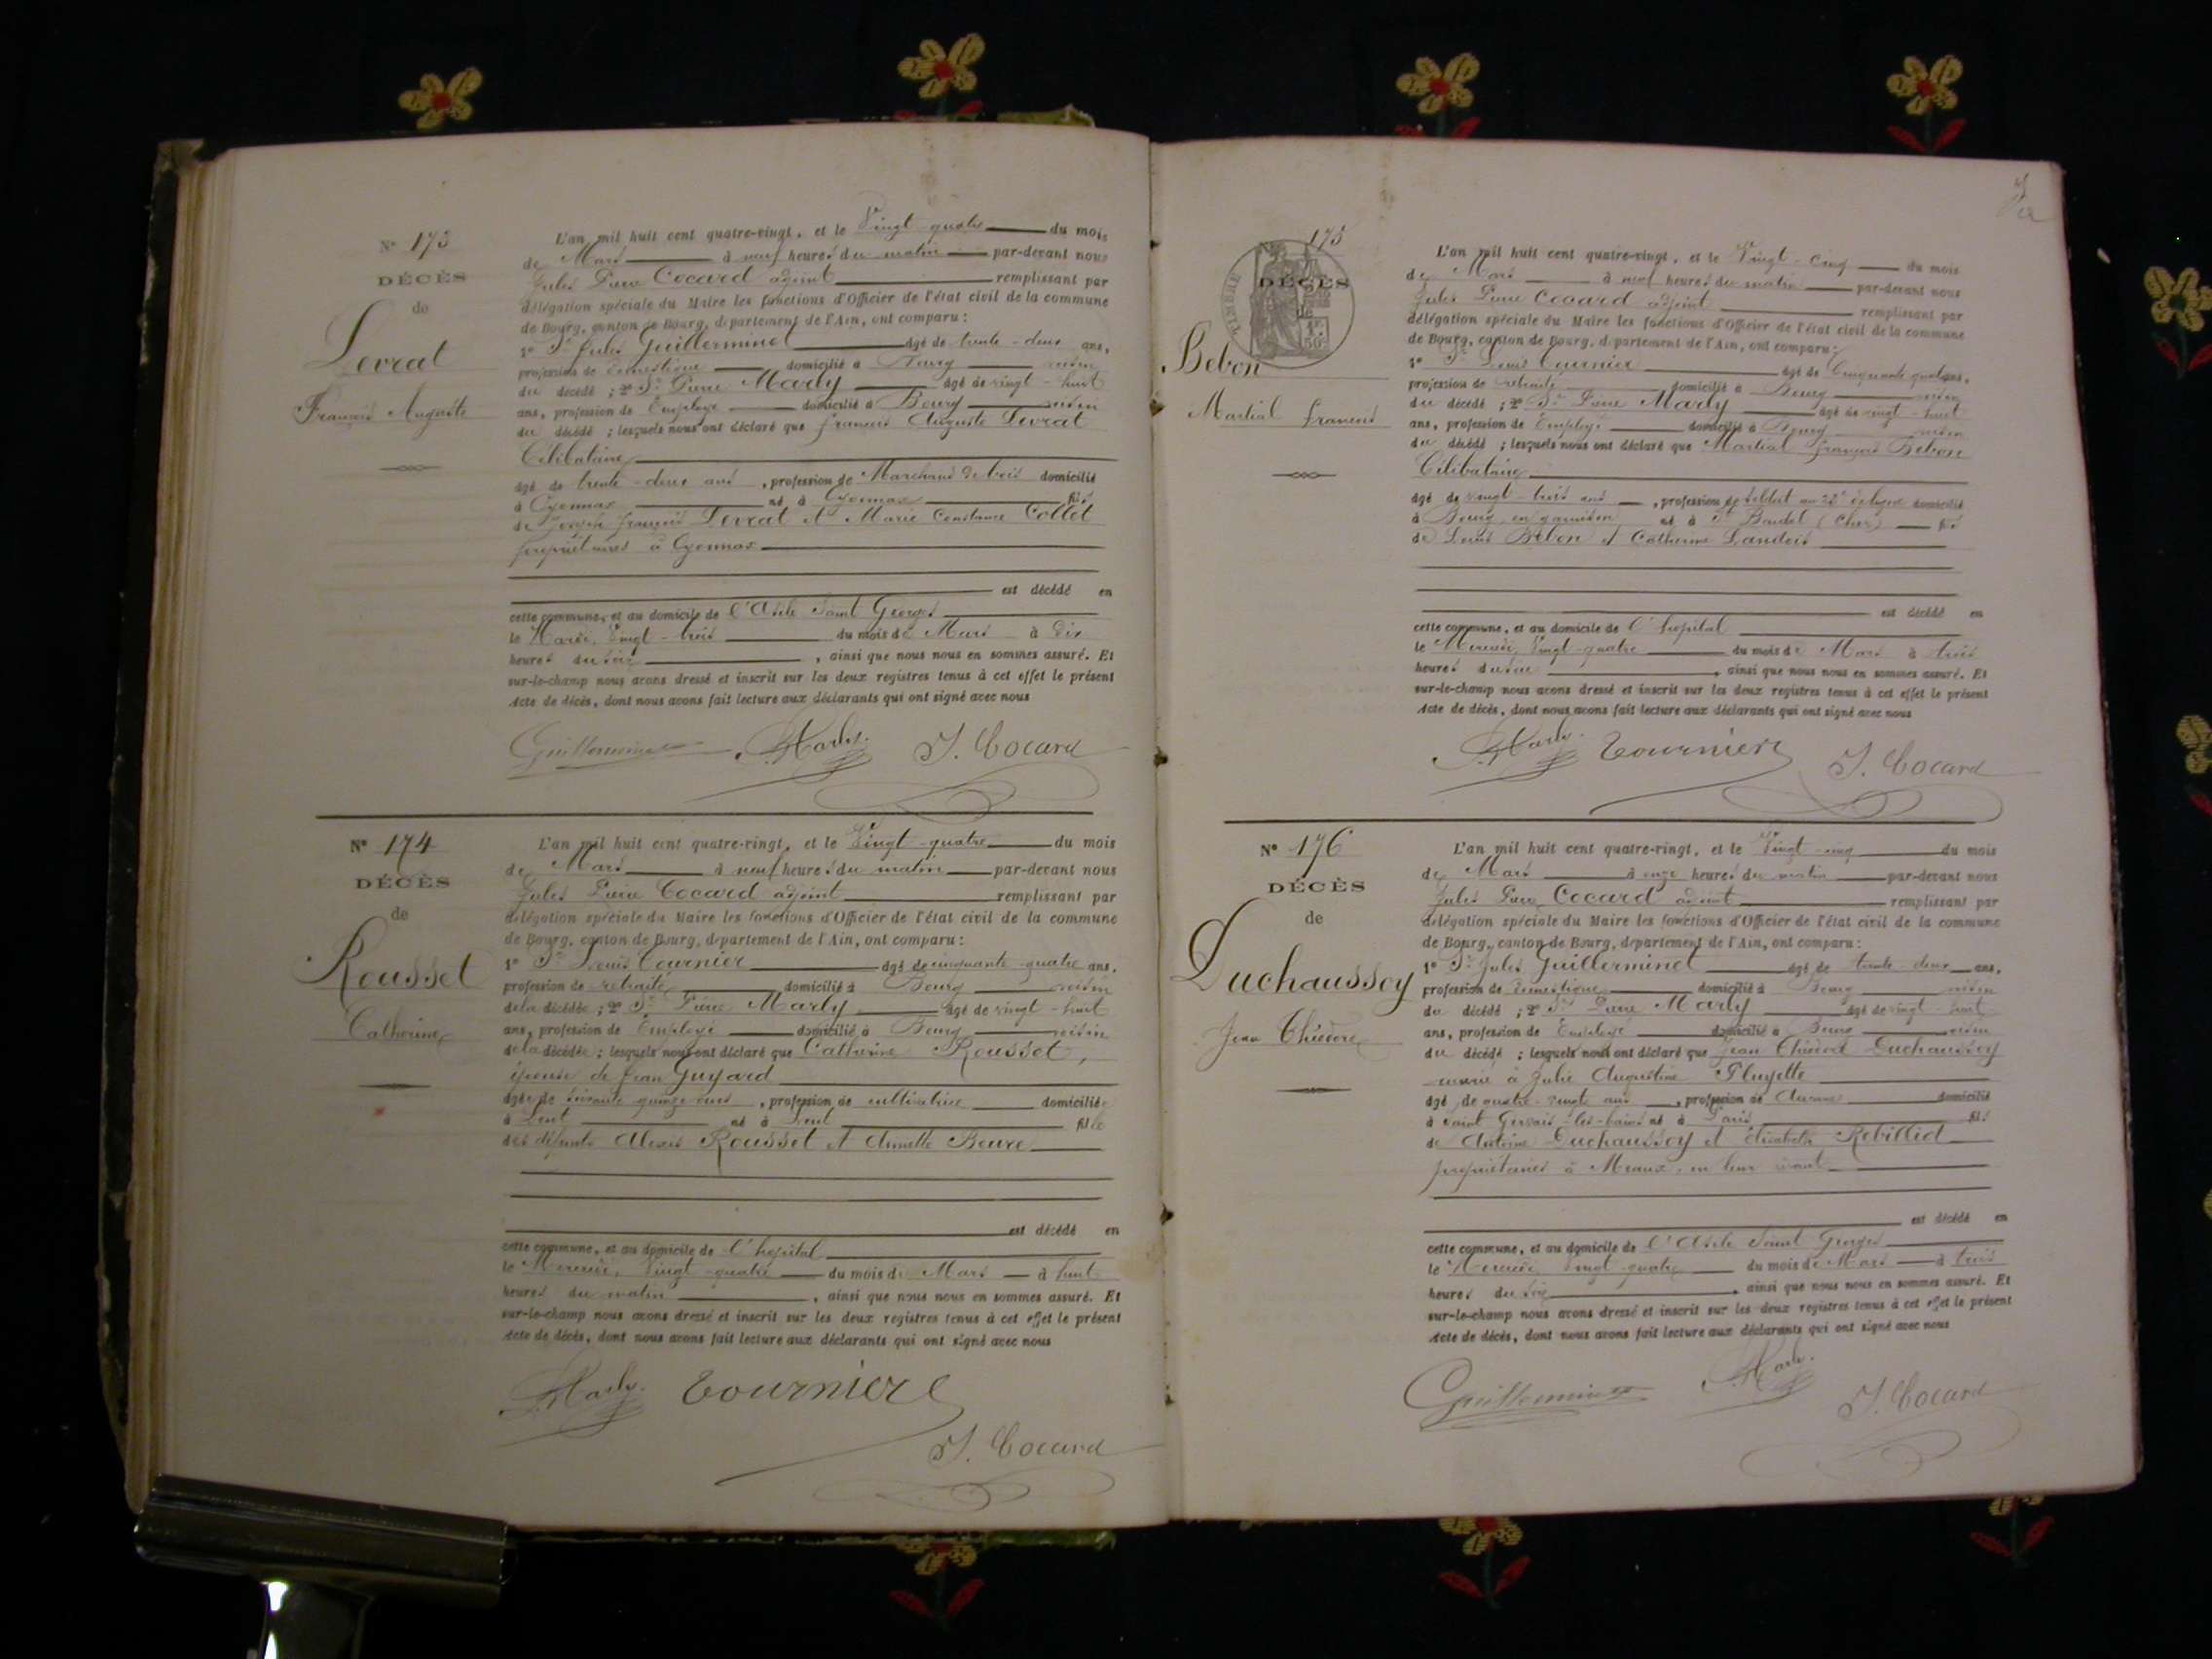 N° 173
DÉCÈS
de
Levrat
François Auguste
L'an mil huit cent quatre-vingt, et le Vingt-quatre du mois
de Mars à neuf heures du matin par-devant nous
Jules Pierre Cocard adjoint remplissant par
délégation spéciale du Maire les fonctions d'Officier de l'état civil de la commune
de Bourg, canton de Bourg, département de l'Ain, ont comparu :
1° Sr Jules Guillerminet âgé de trente-deux ans,
profession de domestique domicilié à Bourg voisin
du décédé ; 2° Sr Pierre Marly âgé de vingt-huit
ans, profession de Employé domicilié à Bourg voisin
du décédé ; lesquels nous ont déclaré que François Auguste Levrat
Célibataire
âgé de trente-deux ans, profession de Marchand de bois domicilié
à Oyonnax né à Oyonnax fils
de Joseph François Levrat et Marie Constance Collet
propriétaires à Oyonnax
est décédé en
cette commune, et au domicile de l'Asile Saint Georges
le Mardi Vingt-trois du mois de Mars à dix
heures du soir, ainsi que nous nous en sommes assuré. Et
sur-le-champ nous avons dressé et inscrit sur les deux registres tenus à cet effet le présent
Acte de décès, dont nous avons fait lecture aux déclarants qui ont signé avec nous
Guillerminet P. Marly. J. Cocard
N° 174
DÉCÈS
de
Rousset
Catherine
L'an mil huit cent quatre-vingt, et le Vingt-quatre du mois
de Mars à neuf heures du matin par-devant nous
Jules Pierre Cocard adjoint remplissant par
délégation spéciale du Maire les fonctions d'Officier de l'état civil de la commune
de Bourg, canton de Bourg, département de l'Ain, ont comparu :
1° Sr Louis Tournier âgé de cinquante-quatre ans,
profession de retraité domicilié à Bourg voisin
de la décédée ; 2° Sr Pierre Marly âgé de vingt-huit
ans, profession de Employé domicilié à Bourg voisin
de la décédée ; lesquels nous ont déclaré que Catherine Rousset,
épouse de Jean Guyard
âgée de soixante quinze ans, profession de cultivatrice domiciliée
à Lent né à Lent fille
des défunts Alexis Rousset et Annette Beure
est décédé en
cette commune, et au domicile de l'hopital
le Mercredi, Vingt-quatre du mois de Mars à huit
heures du matin, ainsi que nous nous en sommes assuré. Et
sur-le-champ nous avons dressé et inscrit sur les deux registres tenus à cet effet le présent
Acte de décès, dont nous avons fait lecture aux déclarants qui ont signé avec nous
P. Marly. Tournier
J. Cocard
175
TIMBRE
DÉCÈS
de
Bebon
Martial François
L'an mil huit cent quatre-vingt, et le Vingt-cinq du mois
de Mars à neuf heures du matin par-devant nous
Jules Pierre Cocard adjoint remplissant par
délégation spéciale du Maire les fonctions d'Officier de l'état civil de la commune
de Bourg, canton de Bourg, département de l'Ain, ont comparu :
1° Sr Louis Tournier âgé de Cinquante quatre ans,
profession de retraité domicilié à Bourg voisin
du décédé ; 2° Sr Pierre Marly âgé de vingt-huit
ans, profession de Employé domicilié à Bourg voisin
du décédé ; lesquels nous ont déclaré que Martial François Bebon
Célibataire
âgé de vingt-trois ans, profession de soldat au de ligne domicilié
à Bourg en garnison né à St Baudel (Cher) fils
de Louis Bebon et Catherine Landois
est décédé en
cette commune, et au domicile de l'hopital
le Mercredi Vingt-quatre du mois de Mars à trois
heures du soir, ainsi que nous nous en sommes assuré. Et
sur-le-champ nous avons dressé et inscrit sur les deux registres tenus à cet effet le présent
Acte de décès, dont nous avons fait lecture aux déclarants qui ont signé avec nous
P. Marly. Tournier J. Cocard
N° 176
DÉCÈS
de
Duchaussoy
Jean Théodore
L'an mil huit cent quatre-vingt, et le Vingt-cinq du mois
de Mars à onze heures du matin par-devant nous
Jules Pierre Cocard adjoint remplissant par
délégation spéciale du Maire les fonctions d'Officier de l'état civil de la commune
de Bourg, canton de Bourg, département de l'Ain, ont comparu :
1° Sr Jules Guillerminet âgé de trente-deux ans,
profession de domestique domicilié à Bourg voisin
du décédé ; 2° Sr Pierre Marly âgé de vingt-huit
ans, profession de Employé domicilié à Bourg voisin
du décédé ; lesquels nous ont déclaré que Jean Théodore Duchaussoy
marié à Julie Augustine Pluyette
âgé de quatre-vingts ans, profession de domicilié
à Saint Gervais-les-bains né à Paris fils
de Antoine Duchaussoy et Elisabeth Rebillid
propriétaires à Meaux, en leur vivant
est décédé en
cette commune, et au domicile de l'Asile Saint Georges
le Mercredi Vingt quatre du mois de Mars à trois
heures du soir, ainsi que nous nous en sommes assuré. Et
sur-le-champ nous avons dressé et inscrit sur les deux registres tenus à cet effet le présent
Acte de décès, dont nous avons fait lecture aux déclarants qui ont signé avec nous
Guillerminet P. Marly.
J. Cocard